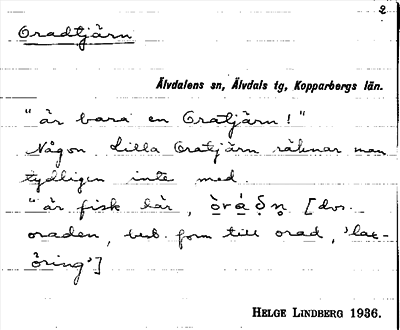 2
Oradtjärn
Älvdalens sn, Älvdals tg, Kopparbergs län.
"är bara en Oratjärn!"
Någon Lilla Oratjärn räknar man
tydligen inte med.
"är fisk här, [dvs.
oraden, best. form till orad, 'lax-
öring']
HELGE LINDBERG 1936.